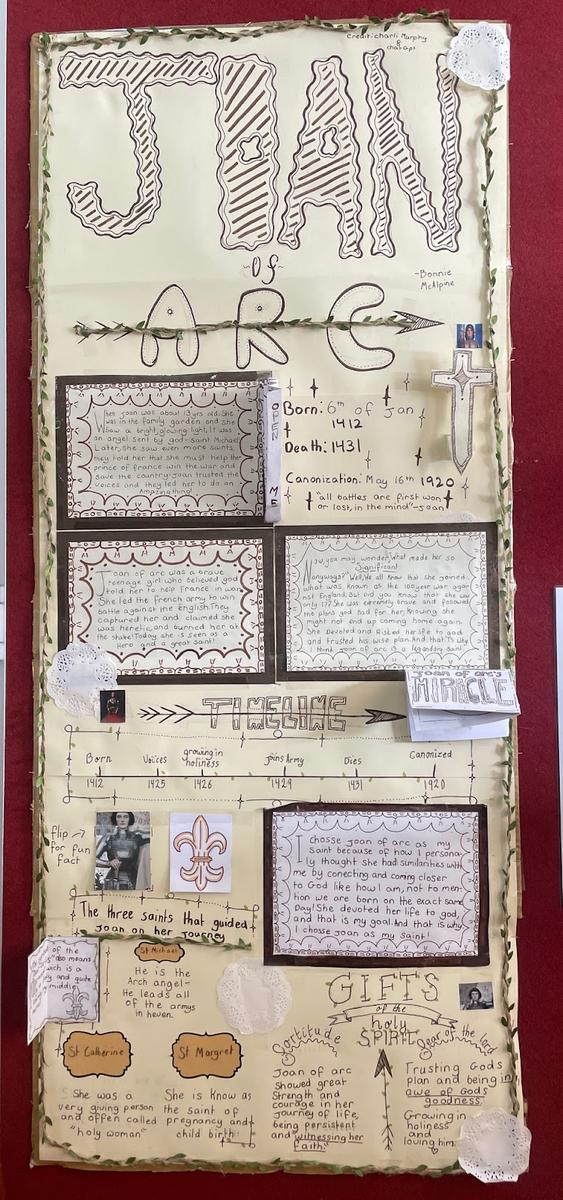 Credit: Charli Murphy
&
JOAN
~Of~
-Bonnie
McAlpine
ARC
When Joan was about 13 yrs old. She
was in the family garden and she
saw a bright, glowing light, It was
an angel sent by god- saint Michael
Later, she saw even more saints,
they told her that she must help the
prince of france win the war and
save the country. Joan trusted the
voices and they led her to do an
Amazing thing!
OPEN ME
Born: 6th of Jan
1412
Death: 1431
Canonization: May 16th 1920
"all battles are first won
or lost, in the mind"-Joan
Joan of arc was a brave
teenage girl who believed god
told her to help France in war.
She led the french army to win
battle against the English. They
captured her and claimed she
was heretic, and burned her at
the stake! Today she is seen as a
Hero and a great saint!
Now, you may wonder, "What made her so
Significant
Anyways?" Well, We all know that she joined
what was known as the 100 year war against
England. But did you know that she was
only 17? She was extremely brave and followed
the plans god had for her, knowing she
might not end up coming home again.
She Devoted and Risked her life to god
and trusted his wise plan. And that is why
I think Joan of arc is a legendary saint.
Joan of arc's
MIRACLE
TIMELINE
Born
Voices
growing in
holiness
Joins Army
Dies
Canonized
1412
1425
1426
1429
1431
1920
flip →
for fun
fact
I chosse Joan of arc as my
Saint because of how I persona-
ly thought she had similarities with
me by conecting and coming closer
to God like how I am, not to men-
tion we are born on the exact same
Day! She devoted her life to god,
and that is my goal. And that is why
I chosse Joan as my saint!
The three saints that guided
Joan on her journey
of the
also means
which is a
and quite
middle
St Michael
He is the
Arch angel-
He leads all
of the armys
in heven.
St Catherine
She was a
very giving person
and offen called
"holy woman"
St Margret
She is know as
the saint of
pregnancy and
child birth
GIFTS
of the
holy
SPIRIT
Fortitude
Joan of arc
showed great
Strength and
courage in her
journey of life,
being persistent
and witnessing her
faith.
fear of the lord
Trusting Gods
plan and being in
awe of Gods
goodness.
Growing in
holiness
and
loving him.